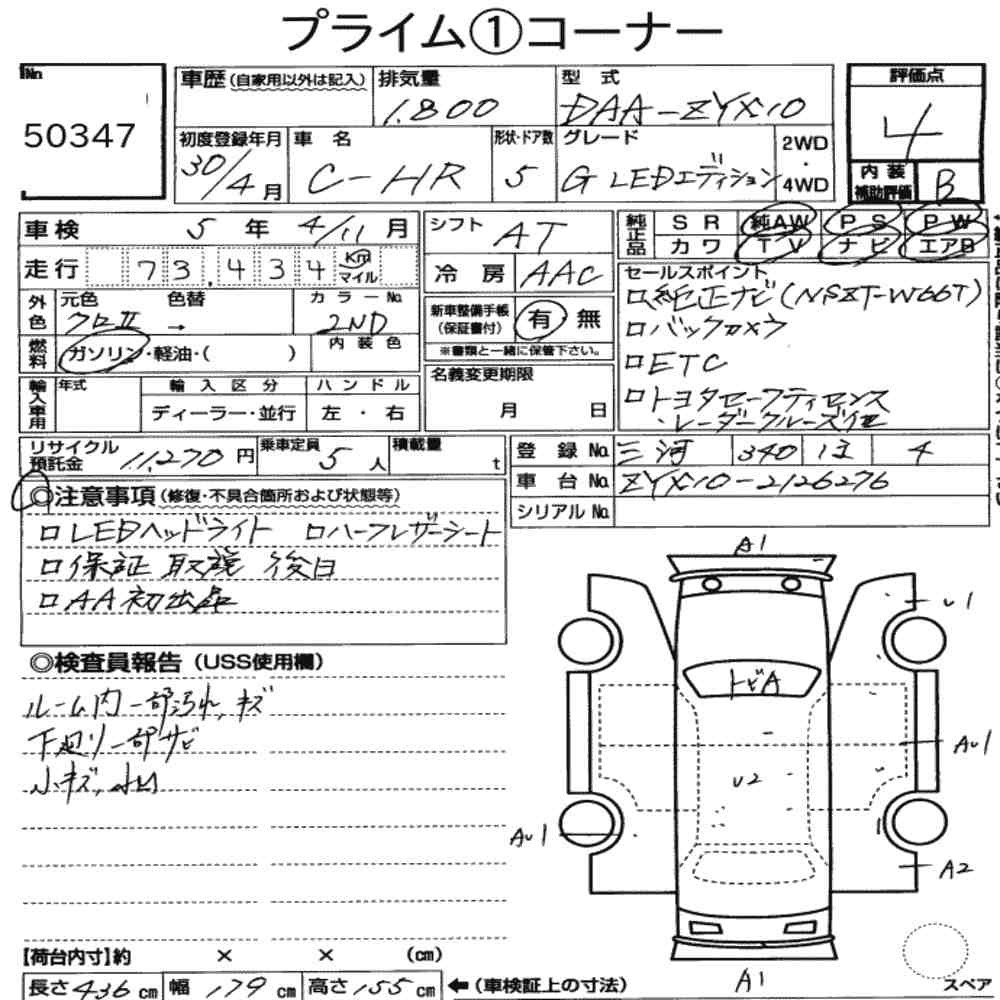 プライム①コーナー
No.
50347
車歴(自家用以外は記入)
排気量
1.800
型 式
DAA-ZYX10
評価点
4
初度登録年月
30/4月
車 名
C-HR
形状・ドア数
5
グレード
G LEDエディション
2WD
・
4WD
内 装
補助評価
B
車検 5 年 4/11 月
走行 73,434 Km マイル
シフト
AT
冷 房
AAC
純正品
S R 純AW P S P W
カ ワ T V ナ ビ エアB
外色
元色 色替
クロII →
カラーNo.
2ND
燃料
ガソリン・軽油・( )
内 装 色
新車整備手帳
(保証書付)
有 無
※書類と一緒に保管下さい。
セールスポイント
□純正ナビ(NSZT-W66T)
□バックカメラ
□ETC
□トヨタセーフティセンス
・レーダークルーズ他
輸入車用
年式
輸 入 区 分
ディーラー・並行
ハ ン ド ル
左 ・ 右
名義変更期限
月 日
リサイクル
預託金
11,270 円
乗車定員
5 人
積載量
t
登 録 No. 三河 340 は 4
車 台 No. ZYX10-2126276
シリアル No.
◎注意事項(修復・不具合箇所および状態等)
□LEDヘッドライト □ハーフレザーシート
□保証 取説 後日
□AA初出品
◎検査員報告(USS使用欄)
ルーム内一部汚れ,キズ
下廻り一部サビ
小キズ,小凹
A1
U1
トビA
AU1
U2
AU1
A2
A1
スペア
【荷台内寸】約 × × (cm)
長さ 436 cm 幅 179 cm 高さ 155 cm ←(車検証上の寸法)